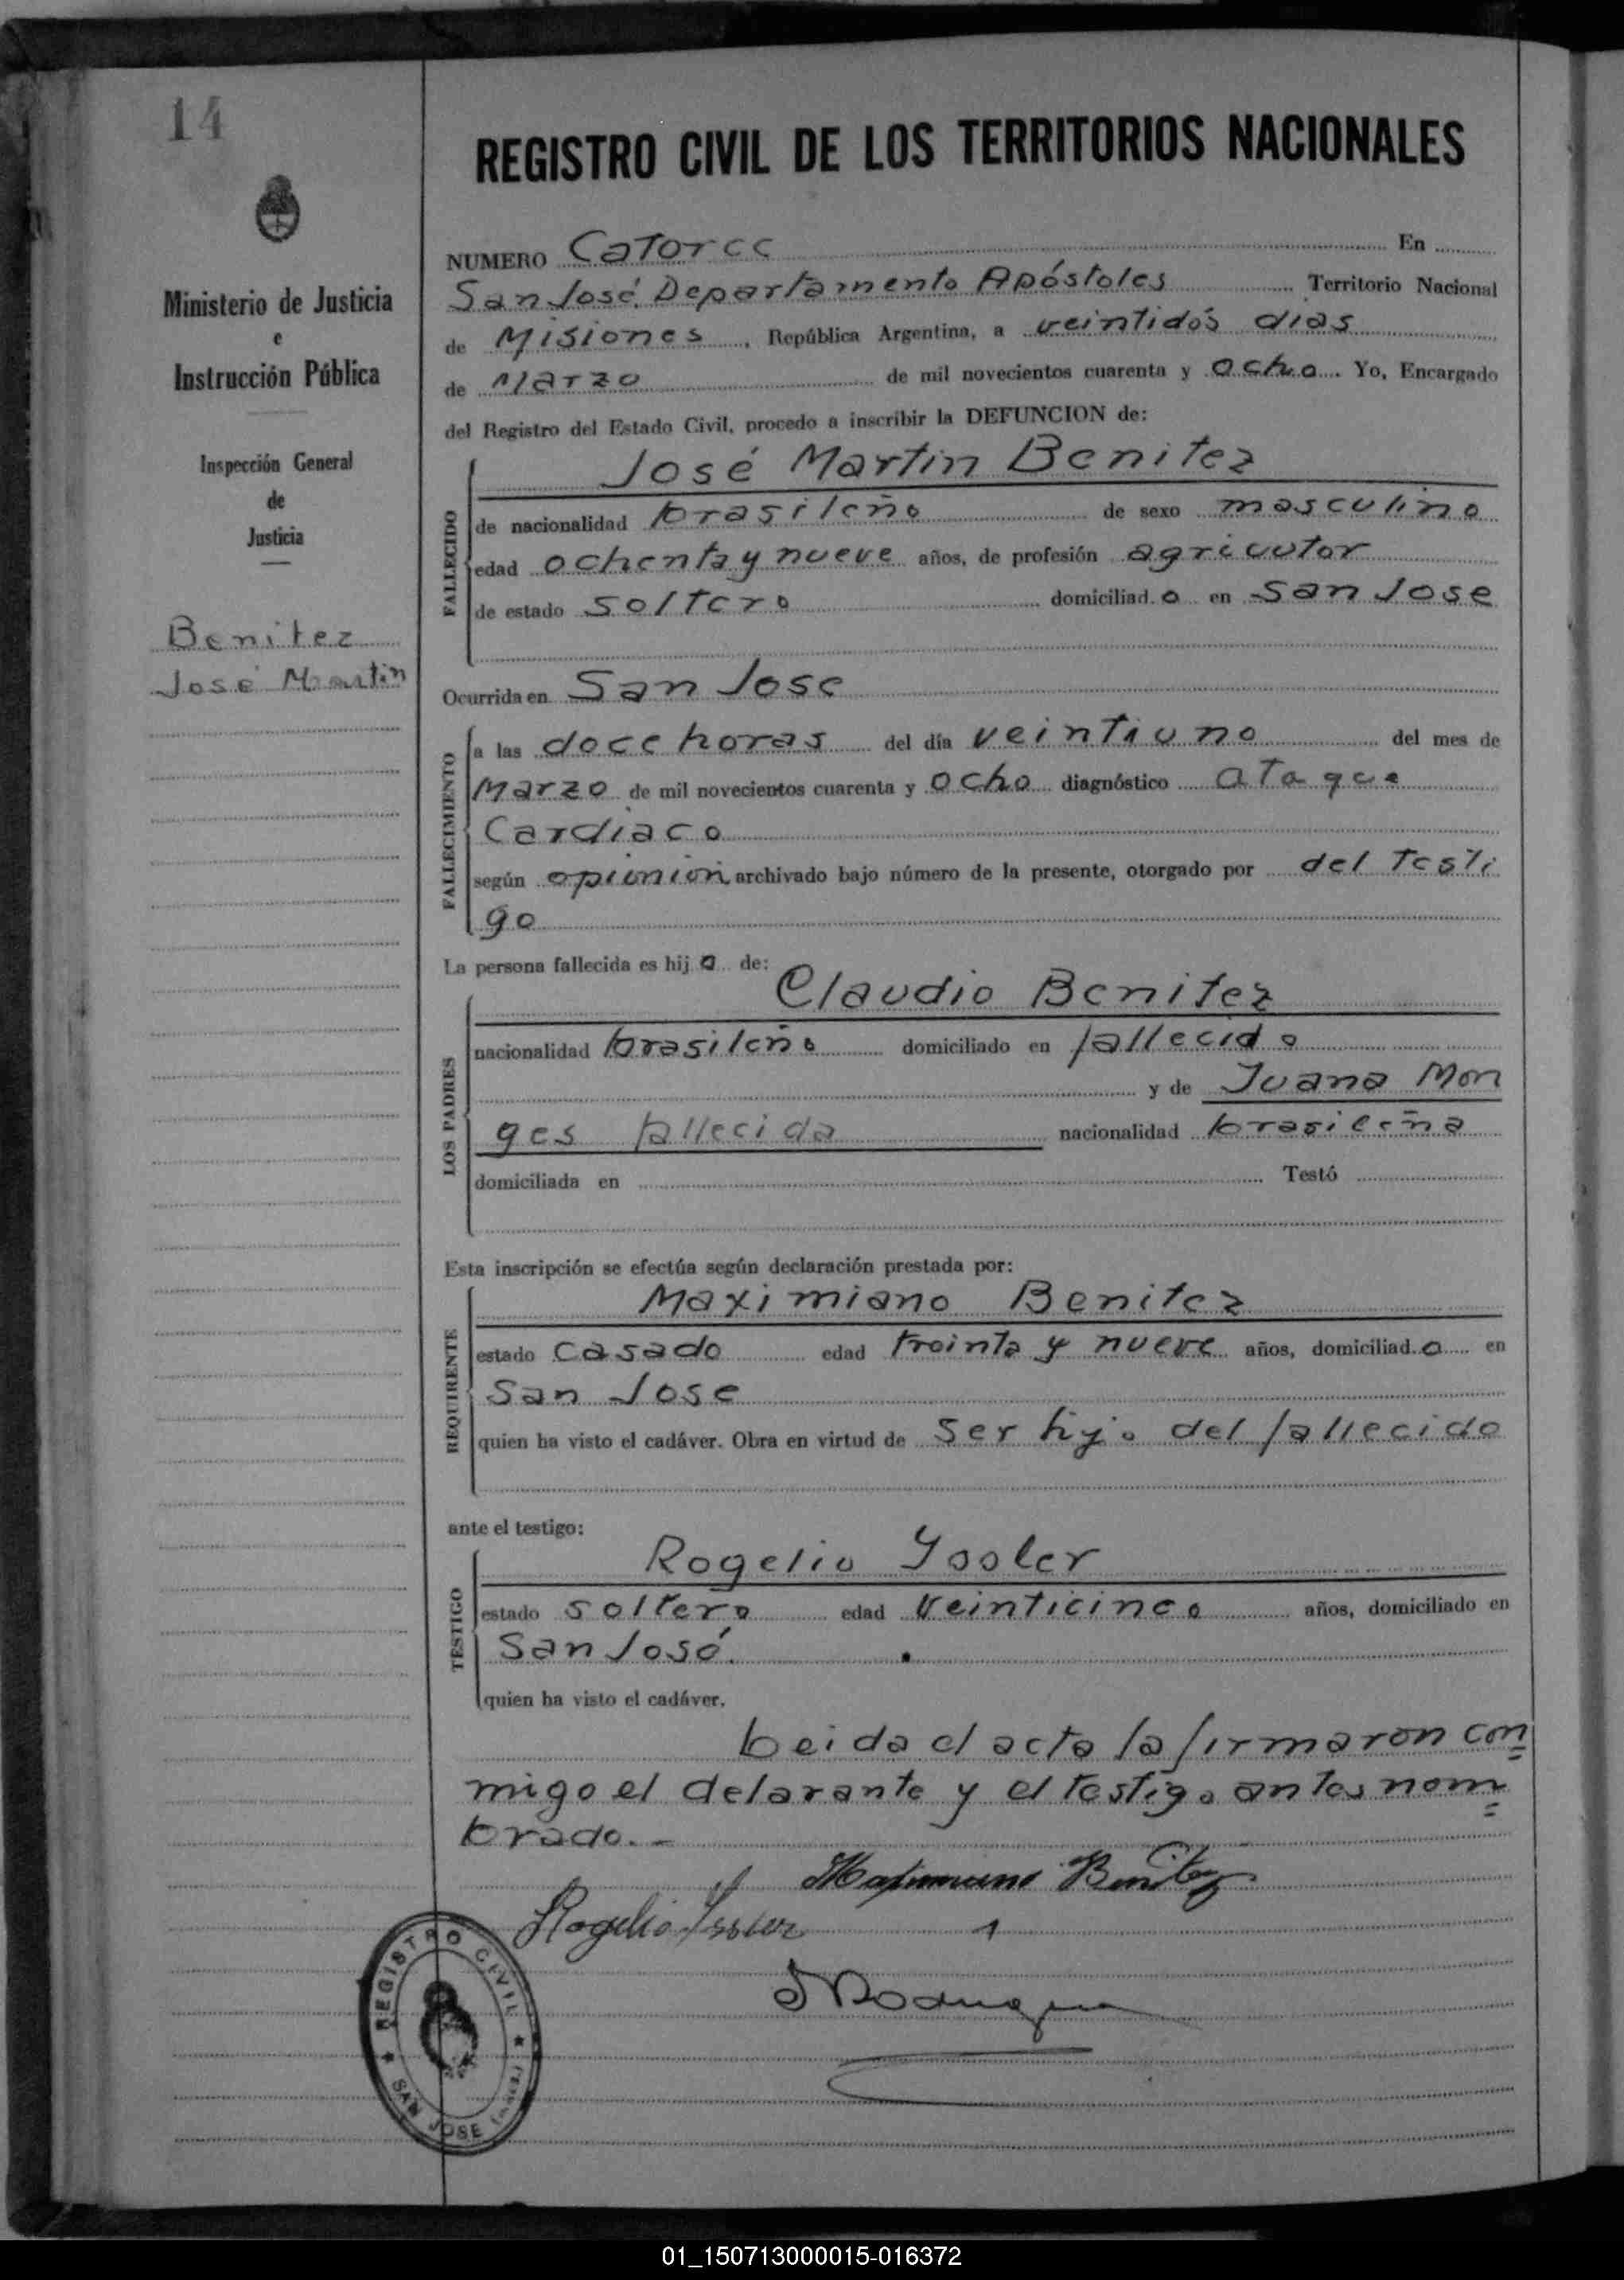 14
REGISTRO CIVIL DE LOS TERRITORIOS NACIONALES
Ministerio de Justicia
e
Instrucción Pública
Inspección General
de
Justicia
Benitez
José Martin
NUMERO Catorce En
San José Departamento Apóstoles Territorio Nacional
de Misiones, República Argentina, a veintidós dias
de Marzo de mil novecientos cuarenta y ocho. Yo, Encargado
del Registro del Estado Civil, procedo a inscribir la DEFUNCION de:
FALLECIDO
José Martin Benitez
de nacionalidad brasileño de sexo masculino
edad ochenta y nueve años, de profesión agricutor
de estado soltero domiciliad o en San Jose
Ocurrida en San Jose
FALLECIMIENTO
a las doce horas del día veintiuno del mes de
Marzo de mil novecientos cuarenta y ocho diagnóstico ataque
Cardiaco
según opiunion archivado bajo número de la presente, otorgado por del testi
go
La persona fallecida es hij o de:
LOS PADRES
Claudio Benitez
nacionalidad brasileño domiciliado en fallecido
y de Juana Mon
ges fallecida nacionalidad brasileña
domiciliada en Testó
Esta inscripción se efectúa según declaración prestada por:
REQUIRENTE
Maximiano Benitez
estado casado edad treinta y nueve años, domiciliad o en
San Jose
quien ha visto el cadáver. Obra en virtud de ser hijo del fallecido
ante el testigo:
TESTIGO
Rogelio Yssler
estado soltero edad veinticinco años, domiciliado en
San José.
quien ha visto el cadáver.
Leida el acta la firmaron con=
migo el delarante y el testigo antes nom=
brado.-
Maximiano Benitez
Rogelio Yssler
REGISTRO CIVIL
SAN JOSE
01_150713000015-016372